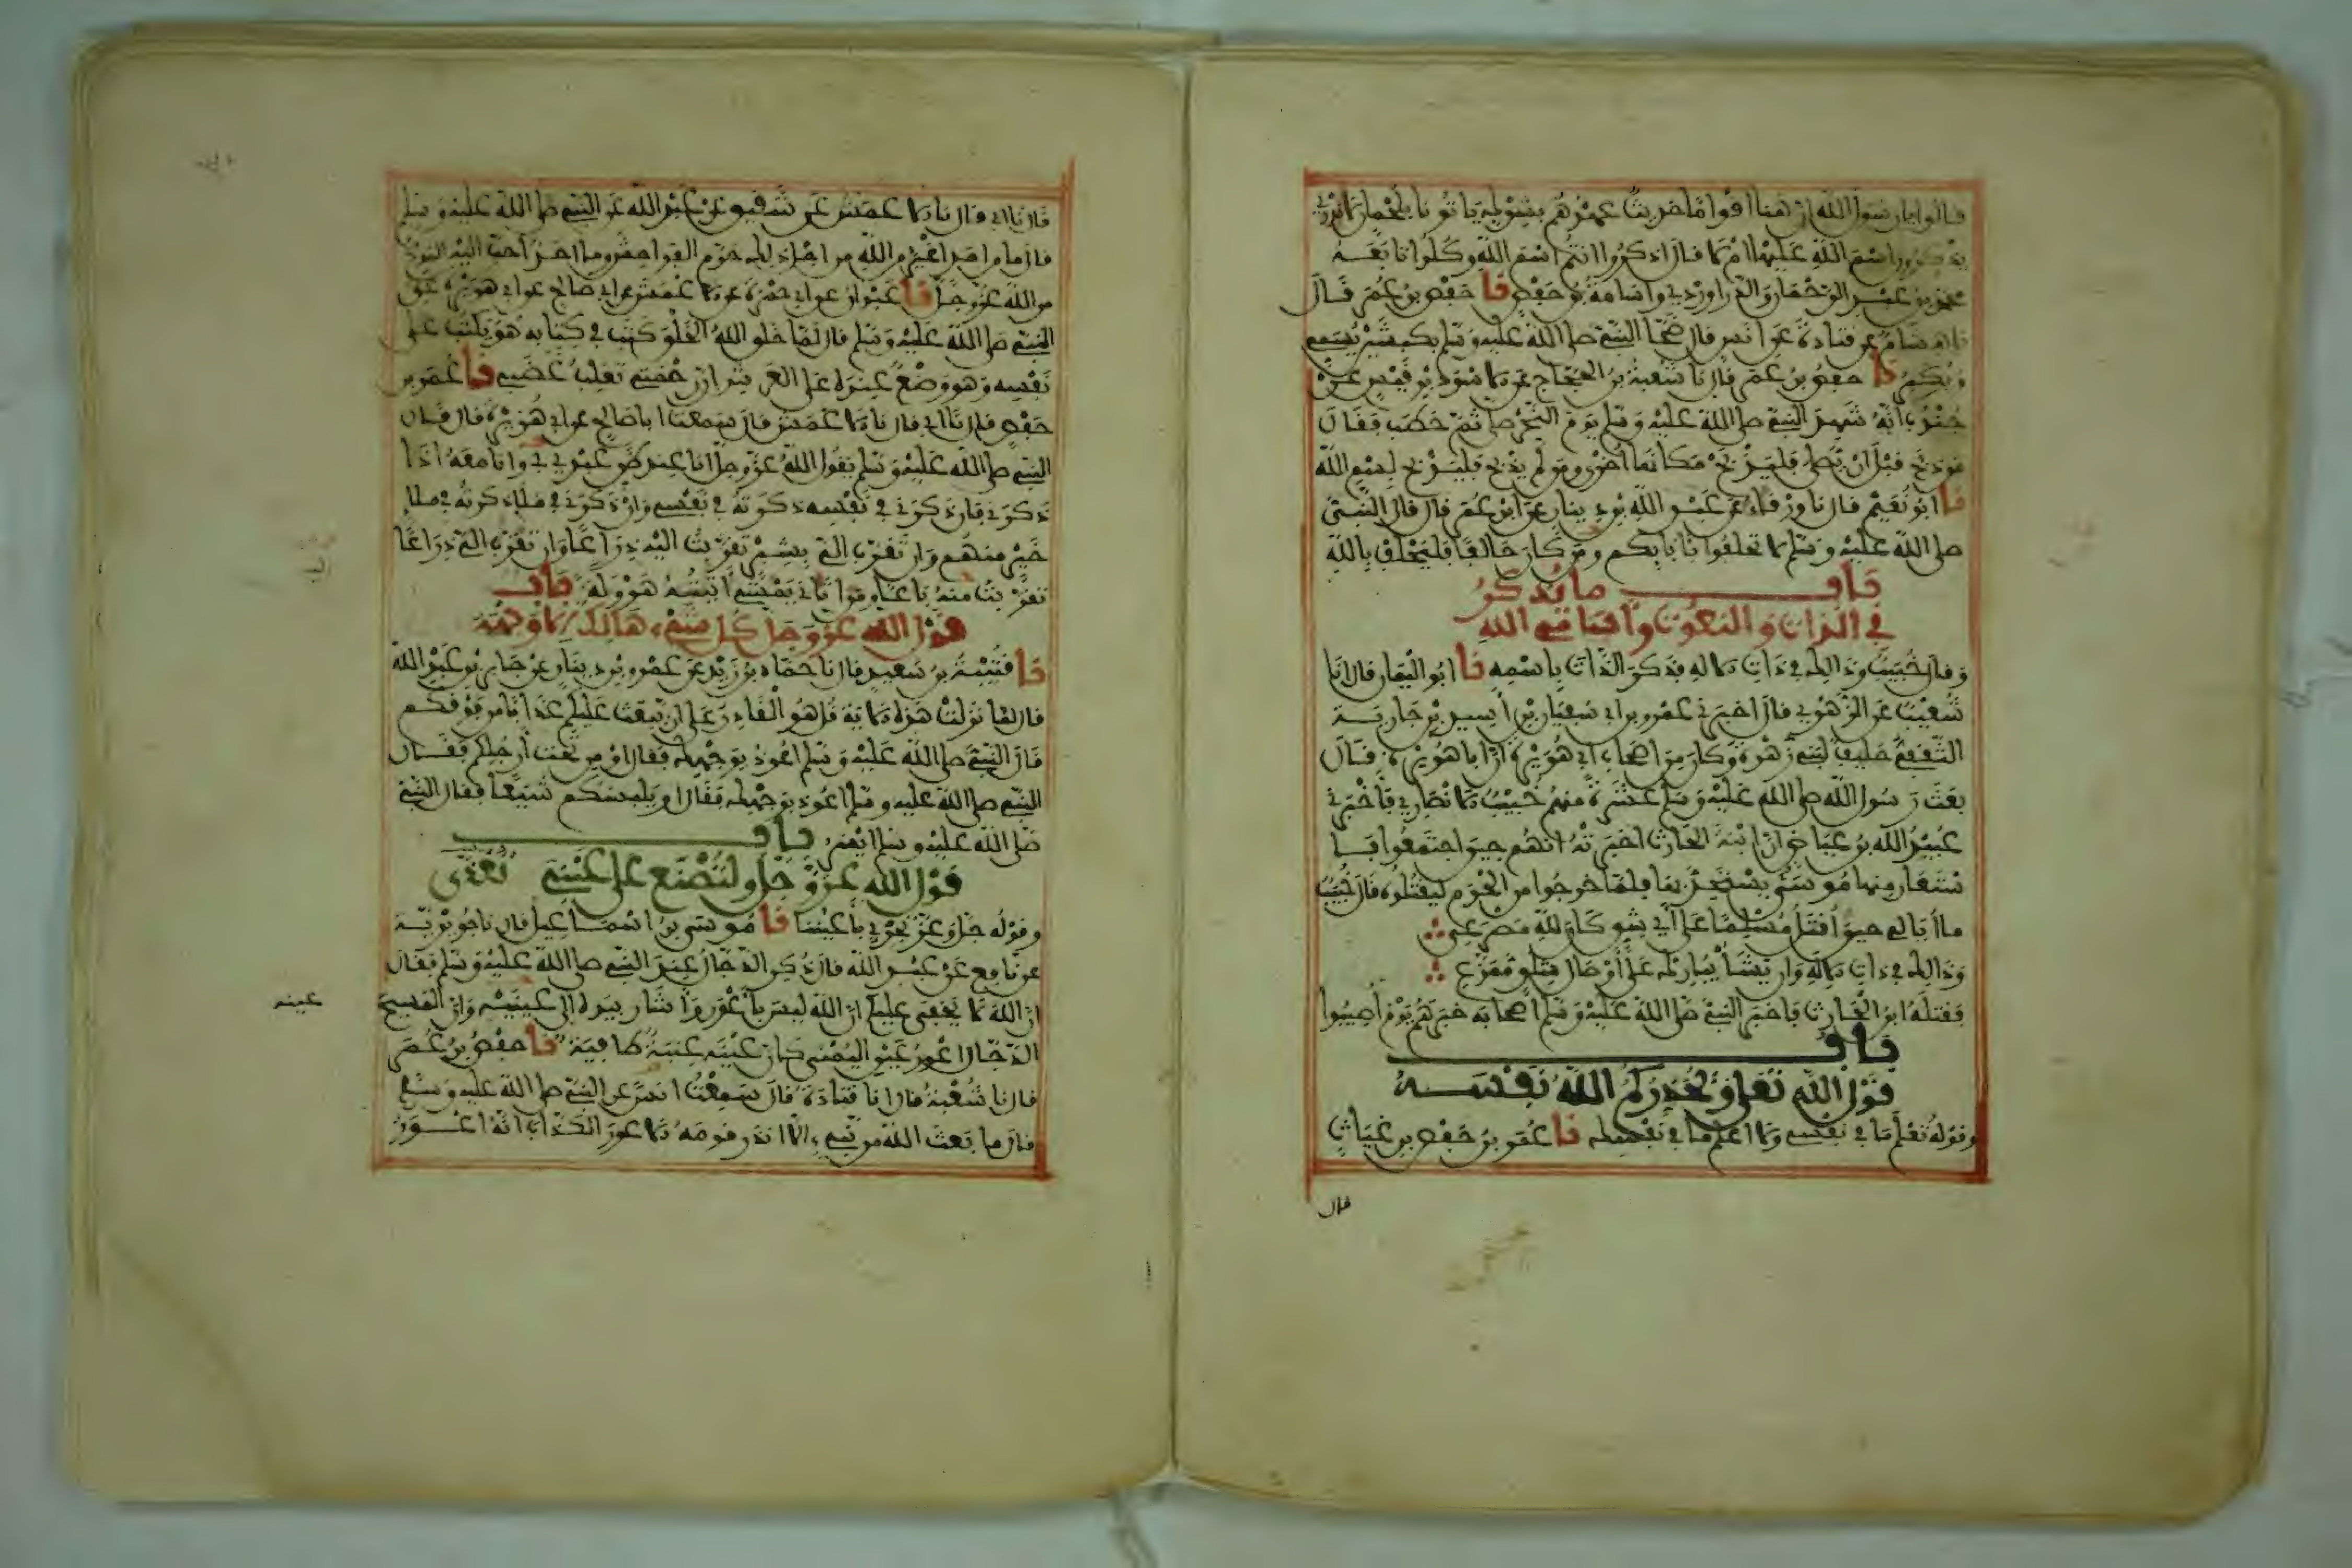 قالوا يا رسول الله ان هنا اقواما حديث عهدهم بشرك ياتونا بلحمان لا ندري
يذكرون اسم الله عليها ام لا قال اذكروا انتم اسم الله وكلوا تابعه
محمد بن عبد الرحمان والدراوردي واسامة بن حفص نا حفص بن عمر قال
نا هشام عن قتادة عن انس قال ضحى النبي صلى الله عليه وسلم بكبشين يسمي
ويكبر نا حفص بن عمر قال نا شعبة بن الحجاج عن الاسود بن قيس عن
جندب انه شهد النبي صلى الله عليه وسلم يوم النحر صلى ثم خطب فقال
من ذبح قبل ان يصلي فليذبح مكانها اخرى ومن لم يذبح فليذبح بسم الله
نا ابو نعيم قال نا ورقاء عن عبد الله بن دينار عن ابن عمر قال قال النبي
صلى الله عليه وسلم لا تحلفوا بابايكم ومن كان حالفا فليحلف بالله
باب ما يذكر
في الذات والنعوت واسامي الله
وقال خبيب وذلك في ذات الاله فذكر الذات باسمه نا ابو اليمان قال انا
شعيب عن الزهري قال اخبرني عمرو بن ابي سفيان بن اسيد بن جارية
الثقفي حليف لبني زهرة وكان من اصحاب ابي هريرة ان ابا هريرة قال
بعث رسول الله صلى الله عليه وسلم عشرة منهم خبيب الانصاري فاخبرني
عبيد الله بن عياض ان ابنة الحارث اخبرته انهم حين اجتمعوا
استعار منها موسى يستحد بها فلما خرجوا من الحرم ليقتلوه قال خبيب
ما ابالي حين اقتل مسلما على اي شق كان لله مصرعي
وذلك في ذات الاله وان يشا يبارك على اوصال شلو ممزع
فقتله ابن الحارث فاخبر النبي صلى الله عليه وسلم اصحابه خبرهم يوم اصيبوا
باب
قول الله تعلى ويحذركم الله نفسه
وقوله تعلم ما في نفسي ولا اعلم ما في نفسك نا عمر بن حفص بن غياث
قال
قال نا ابي قال نا الاعمش عن شقيق عن عبد الله عن النبي صلى الله عليه وسلم
قال ما من احد اغير من الله من اجل ذلك حرم الفواحش وما احد احب اليه المدح
من الله عز وجل نا عبدان عن ابي حمزة عن الاعمش عن ابي صالح عن ابي هريرة عن
النبي صلى الله عليه وسلم قال لما خلق الله الخلق كتب في كتابه هو يكتب على
نفسه وهو وضع عنده على العرش ان رحمتي تغلب غضبي نا عمر بن
حفص قال نا ابي قال نا الاعمش قال سمعت ابا صالح عن ابي هريرة قال قال
النبي صلى الله عليه وسلم يقول الله عز وجل انا عند ظن عبدي بي وانا معه اذا
ذكرني فان ذكرني في نفسه ذكرته في نفسي وان ذكرني في ملاء ذكرته في ملاء
خير منهم وان تقرب الي بشبر تقربت اليه ذراعا وان تقرب الي ذراعا
تقربت منه باعا ومن اتاني يمشي اتيته هرولة باب
قول الله عز وجل كل شيء هالك الا وجهه
نا قتيبة بن سعيد قال نا حماد بن زيد عن عمرو بن دينار عن جابر بن عبد الله
قال لما نزلت هذه الاية قل هو القادر على ان يبعث عليكم عذابا من فوقكم
قال النبي صلى الله عليه وسلم اعوذ بوجهك فقال او من تحت ارجلكم فقال
النبي صلى الله عليه وسلم اعوذ بوجهك فقال او يلبسكم شيعا فقال النبي
صلى الله عليه وسلم ايسر باب
قول الله عز وجل ولتصنع على عيني تغذى
وقوله جل وعز تجري باعيننا نا موسى بن اسماعيل قال نا جويرية
عن نافع عن عبد الله قال ذكر الدجال عند النبي صلى الله عليه وسلم فقال
ان الله لا يخفى عليكم ان الله ليس باعور واشار بيده الى عينيه وان المسيح
عينه
الدجال اعور عين اليمنى كان عينه عنبة طافية نا حفص بن عمر
قال نا شعبة قال انا قتادة قال سمعت انسا عن النبي صلى الله عليه وسلم
قال ما بعث الله من نبي الا انذر قومه الاعور الكذاب انه اعور